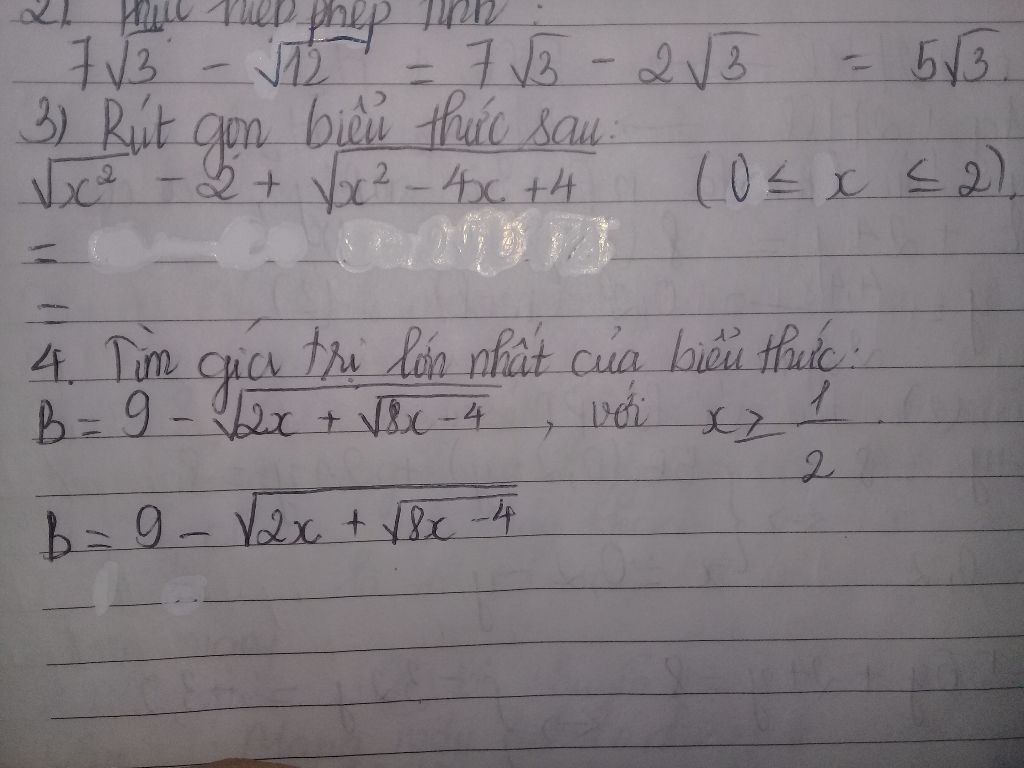 2). Thực hiện phép tính:
7√3 - √12 = 7√3 - 2√3 = 5√3.
3) Rút gọn biểu thức sau:
√x² - 2 + √x² - 4x + 4 (0 ≤ x ≤ 2).
=
=
4. Tìm giá trị lớn nhất của biểu thức:
B = 9 - √2x + √8x - 4 , với x ≥ 1/2.
B = 9 - √2x + √8x - 4